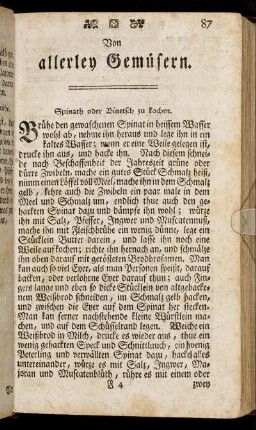 87
Von
allerley Gemüsern.
Spinath oder Binetsch zu kochen.
Brühe den gewaschenen Spinat in heissem Wasser
wohl ab, nehme ihn heraus und lege ihn in ein
kaltes Wasser; wenn er eine Weile gelegen ist,
drucke ihn aus, und hacke ihn. Nach diesem schnei-
de nach Beschaffenheit der Jahreszeit grüne oder
dürre Zwibeln, mache ein gutes Stück Schmalz heiß,
nimm einen Löffel voll Meel, mache ihn in dem Schmalz
gelb, kehre auch die Zwibeln ein paar male in dem
Meel und Schmalz um, endlich thue auch den ge-
hackten Spinat dazu und dämpfe ihn wohl; würze
ihn mit Salz, Pfeffer, Ingwer und Muscatennuß,
mache ihn mit Fleischbrühe ein wenig dünne, lege ein
Stücklein Butter darein, und lasse ihn noch eine
Weile aufkochen; richte ihn hernach an, und schmälze
ihn oben darauf mit gerösteten Brodbrosamen. Man
kan auch so viel Eyer, als man Personen speißt, darauf
backen, oder verlohrne Eyer darauf thun; auch Fin-
gers lange und eben so dicke Stücklein von altgebacke-
nem Weißbrod schneiden, im Schmalz gelb backen,
und zwischen die Eyer auf dem Spinat her stecken.
Man kan ferner nachstehende kleine Würstlein ma-
chen, und auf dem Schüsselrand legen. Weiche ein
Weißbrod in Milch, drucke es wieder aus, thue ein
wenig gehackten Speck und Schnittlauch, ein wenig
Peterling und verwällten Spinat dazu, hacks alles
untereinander, würze es mit Salz, Ingwer, Ma-
joran und Muscatenblüth, rühre es mit einem oder
F 4 zwey